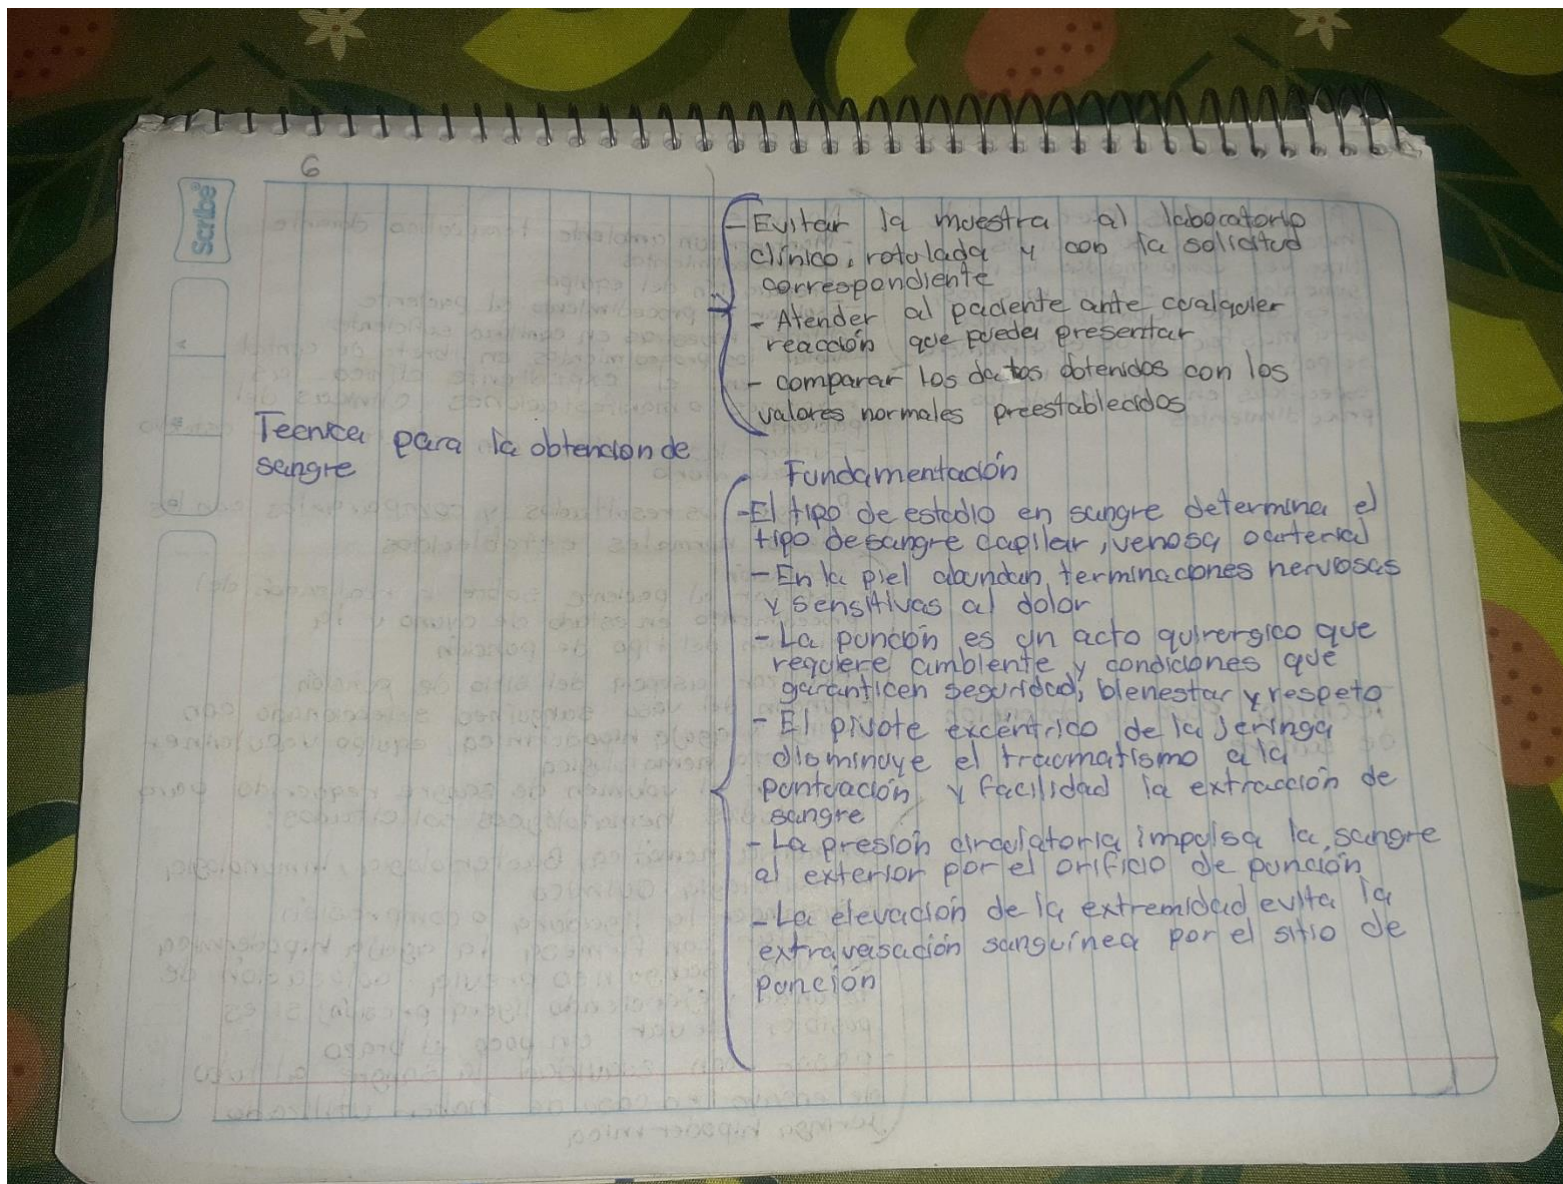 6
Scribe
- Evitar la muestra al laboratorio
clínico, rotulada y con la solicitud
correspondiente
- Atender al paciente ante cualquier
reacción que pueda presentar
- comparar los datos obtenidos con los
valores normales preestablecidos
Tecnica para la obtencion de
sangre
Fundamentación
- El tipo de estudio en sangre determina el
tipo de sangre capilar, venosa o arterial
- En la piel abundan terminaciones nerviosas
y sensitivas al dolor
- La punción es un acto quirergico que
requiere ambiente y condiciones que
garanticen seguridad, bienestar y respeto
- El pivote excéntrico de la jeringa
disminuye el traumatismo a la
puntuación y facilidad la extracción de
sangre
- La presión circulatoria impulsa la sangre
al exterior por el orificio de punción
- La elevación de la extremidad evita la
extravasación sanguínea por el sitio de
punción